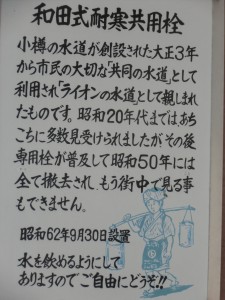 和田式耐寒共用栓
小樽の水道が創設された大正3年
から市民の大切な「共同の水道」として
利用され「ライオンの水道」として親しまれ
たものです。昭和20年代まではあち
こちに多数見受けられましたがその後
専用栓が普及して昭和50年には
全て撤去され、もう街中で見る事
もできません。
昭和62年9月30日設置
水を飲めるようにして
ありますのでご自由にどうぞ!!